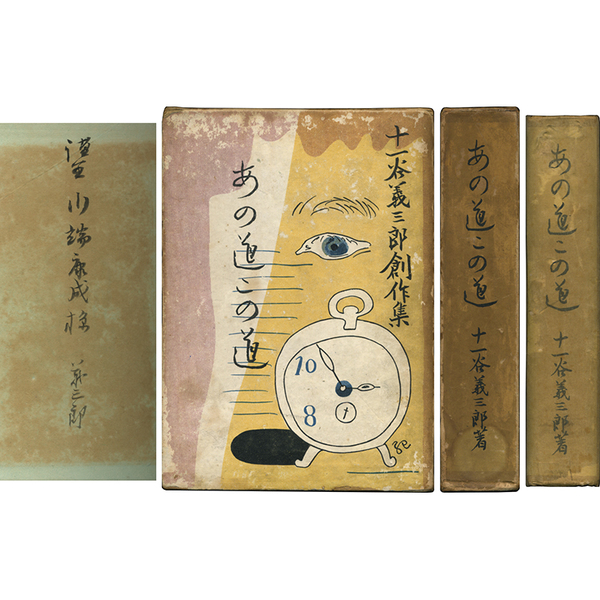 謹呈 川端康成様
義三郎
十一谷義三郎創作集
あの道この道
10
8
あの道この道
十一谷義三郎著
あの道この道
十一谷義三郎著